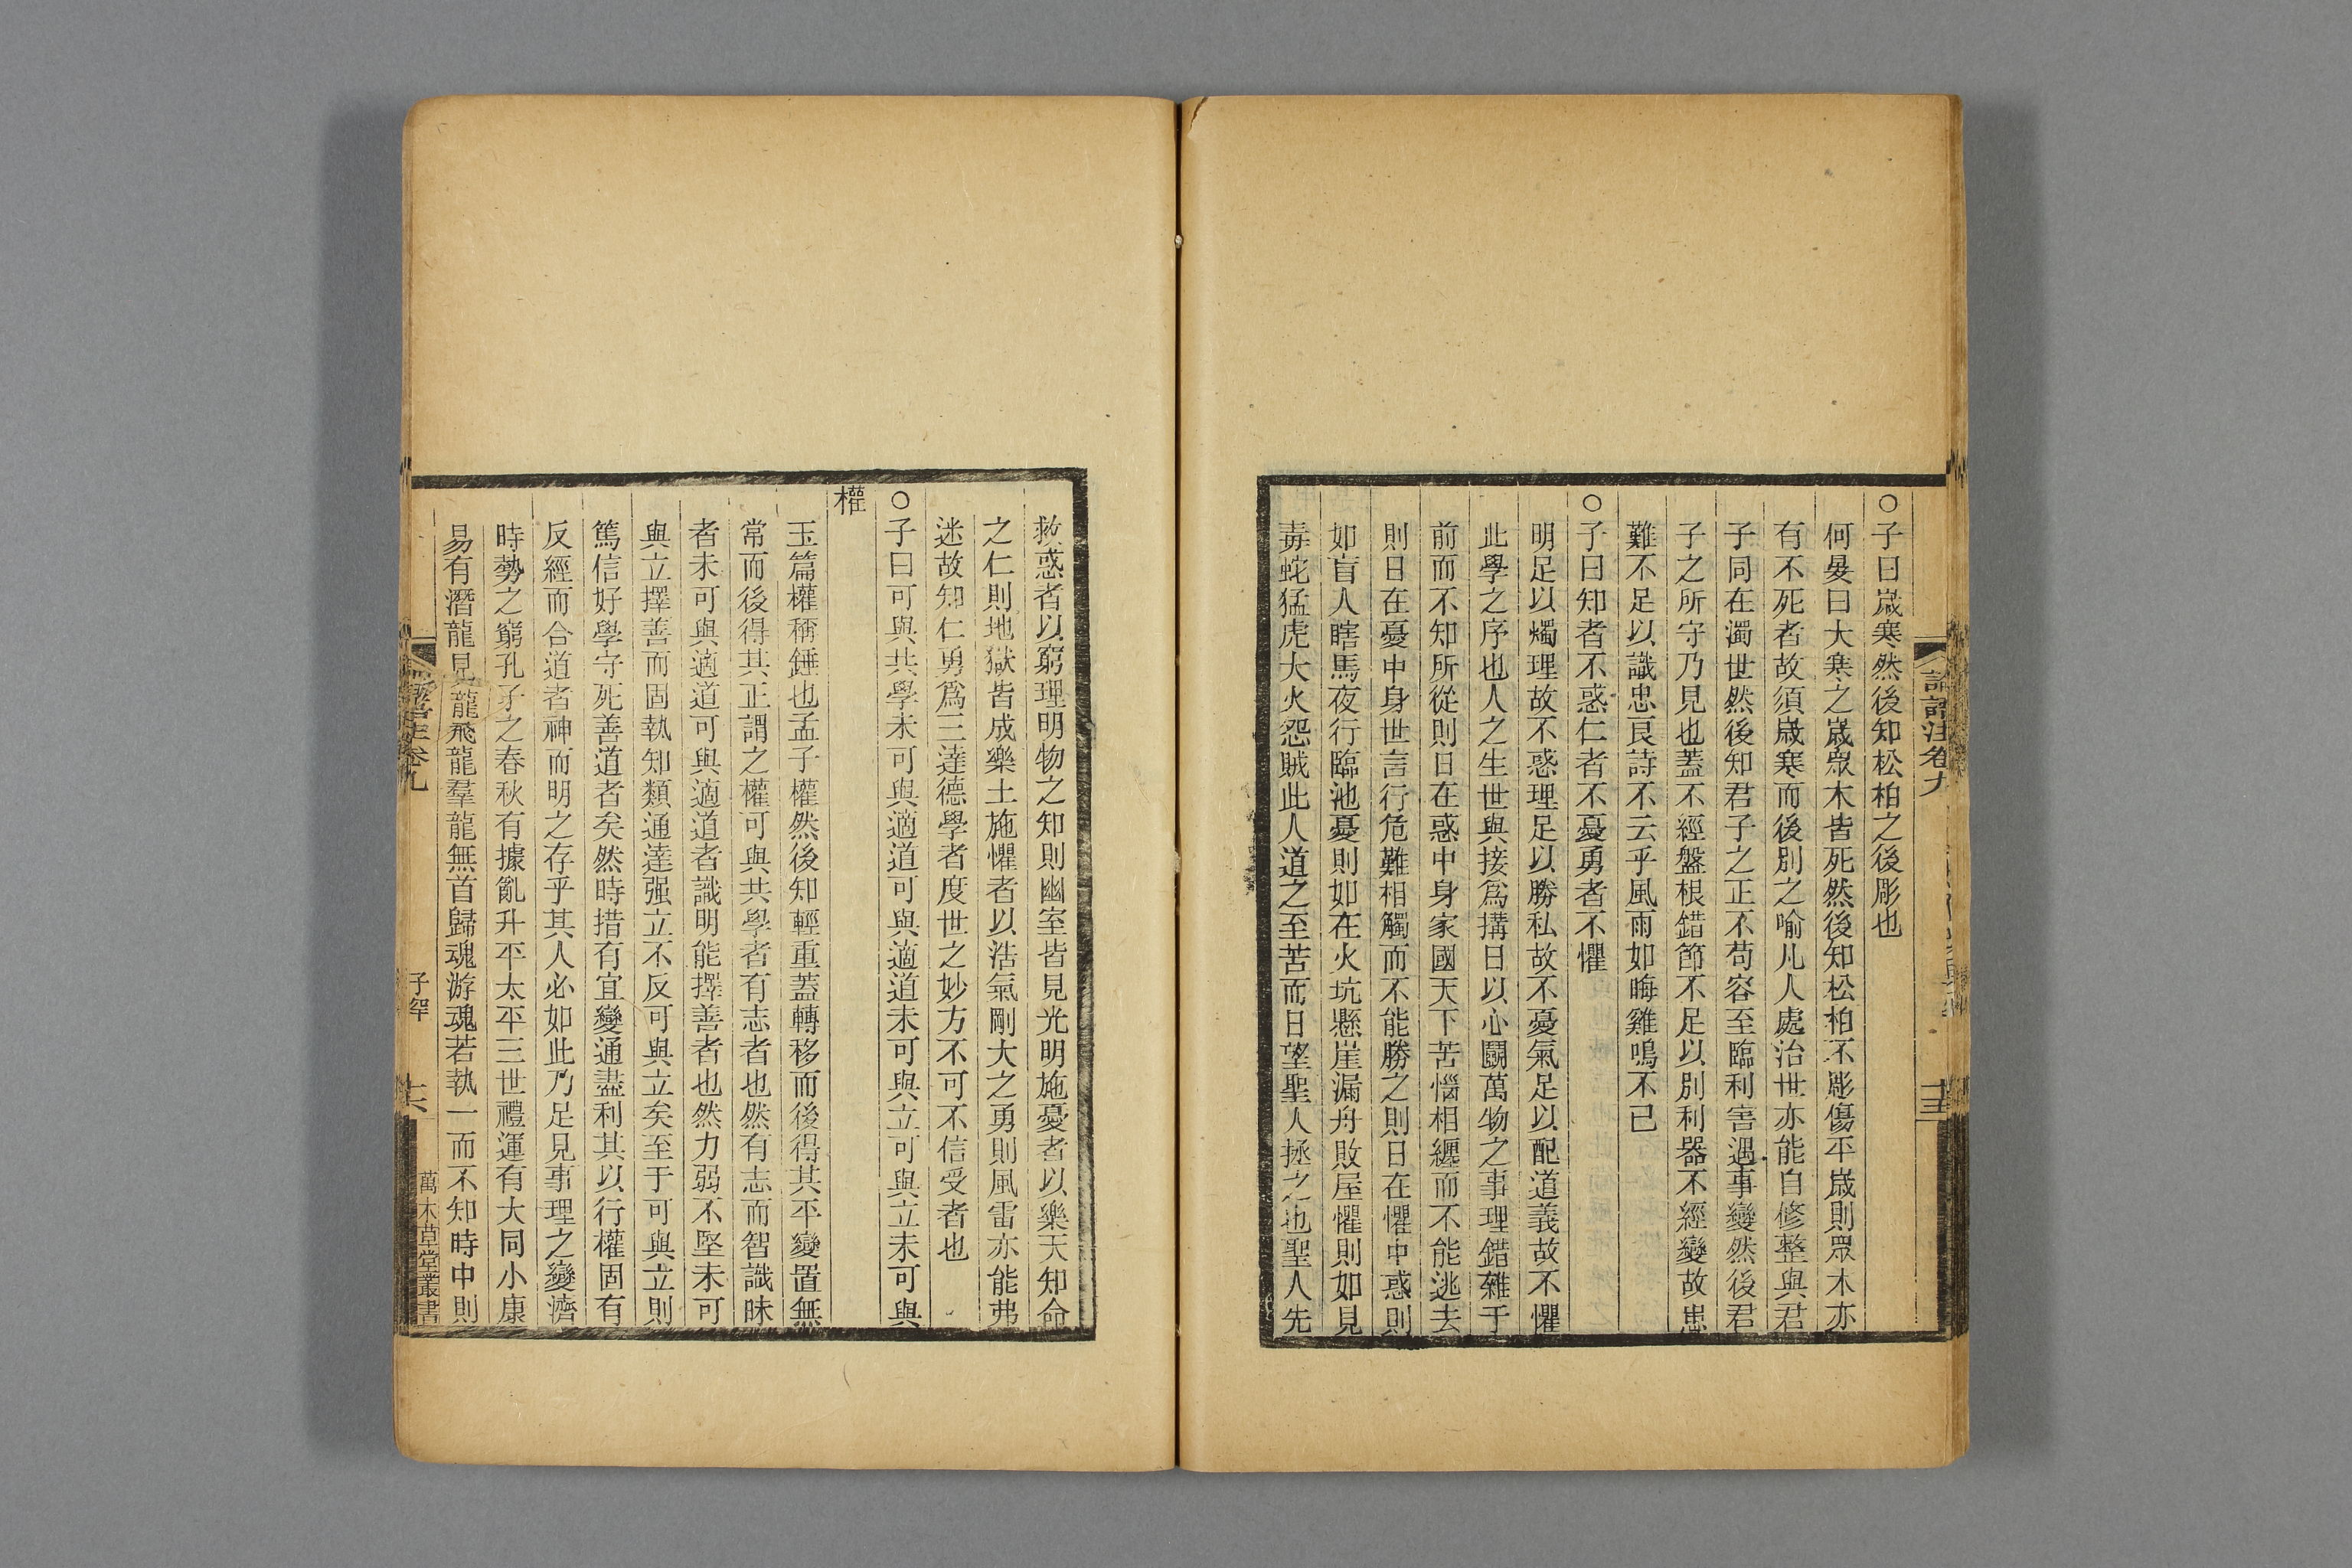 論語注卷九
十五
○子曰歲寒然後知松柏之後彫也
何晏曰大寒之歲眾木皆死然後知松柏不彫傷平歲則眾木亦
有不死者故須歲寒而後別之喻凡人處治世亦能自修整與君
子同在濁世然後知君子之正不苟容至臨利害遇事變然後君
子之所守乃見也蓋不經盤根錯節不足以別利器不經變故患
難不足以識忠良詩不云乎風雨如晦雞鳴不已
○子曰知者不惑仁者不憂勇者不懼
明足以燭理故不惑理足以勝私故不憂氣足以配道義故不懼
此學之序也人之生世與接爲搆日以心鬭萬物之事理錯雜于
前而不知所從則日在惑中身家國天下苦惱相纏而不能逃去
則日在憂中身世言行危難相觸而不能勝之則日在懼中惑則
如盲人瞎馬夜行臨池憂則如在火坑懸崖漏舟敗屋懼則如見
毒蛇猛虎大火怨賊此人道之至苦而日望聖人拯之也聖人先
救惑者以窮理明物之知則幽室皆見光明施憂者以樂天知命
之仁則地獄皆成樂土施懼者以浩氣剛大之勇則風雷亦能弗
迷故知仁勇爲三達德學者度世之妙方不可不信受者也
○子曰可與共學未可與適道可與適道未可與立可與立未可與
權
玉篇權稱錘也孟子權然後知輕重蓋轉移而後得其平變置無
常而後得其正謂之權可與共學者有志者也然有志而智識昧
者未可與適道可與適道者識明能擇善者也然力弱不堅未可
與立擇善而固執知類通達强立不反可與立矣至于可與立則
篤信好學守死善道者矣然時措有宜變通盡利其以行權固有
反經而合道者神而明之存乎其人必如此乃足見事理之變濟
時勢之窮孔子之春秋有據亂升平太平三世禮運有大同小康
易有潛龍見龍飛龍羣龍無首歸魂游魂若執一而不知時中則
論語注卷九
子罕
十六
萬木草堂叢書